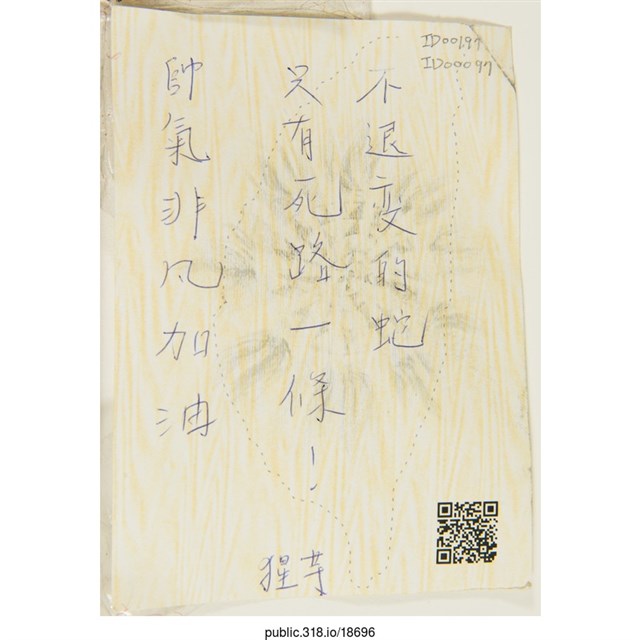 ID00197
ID00097
不退变的蛇
只有死路一條！
帥氣非凡加油
猩芽
public.318.io/18696